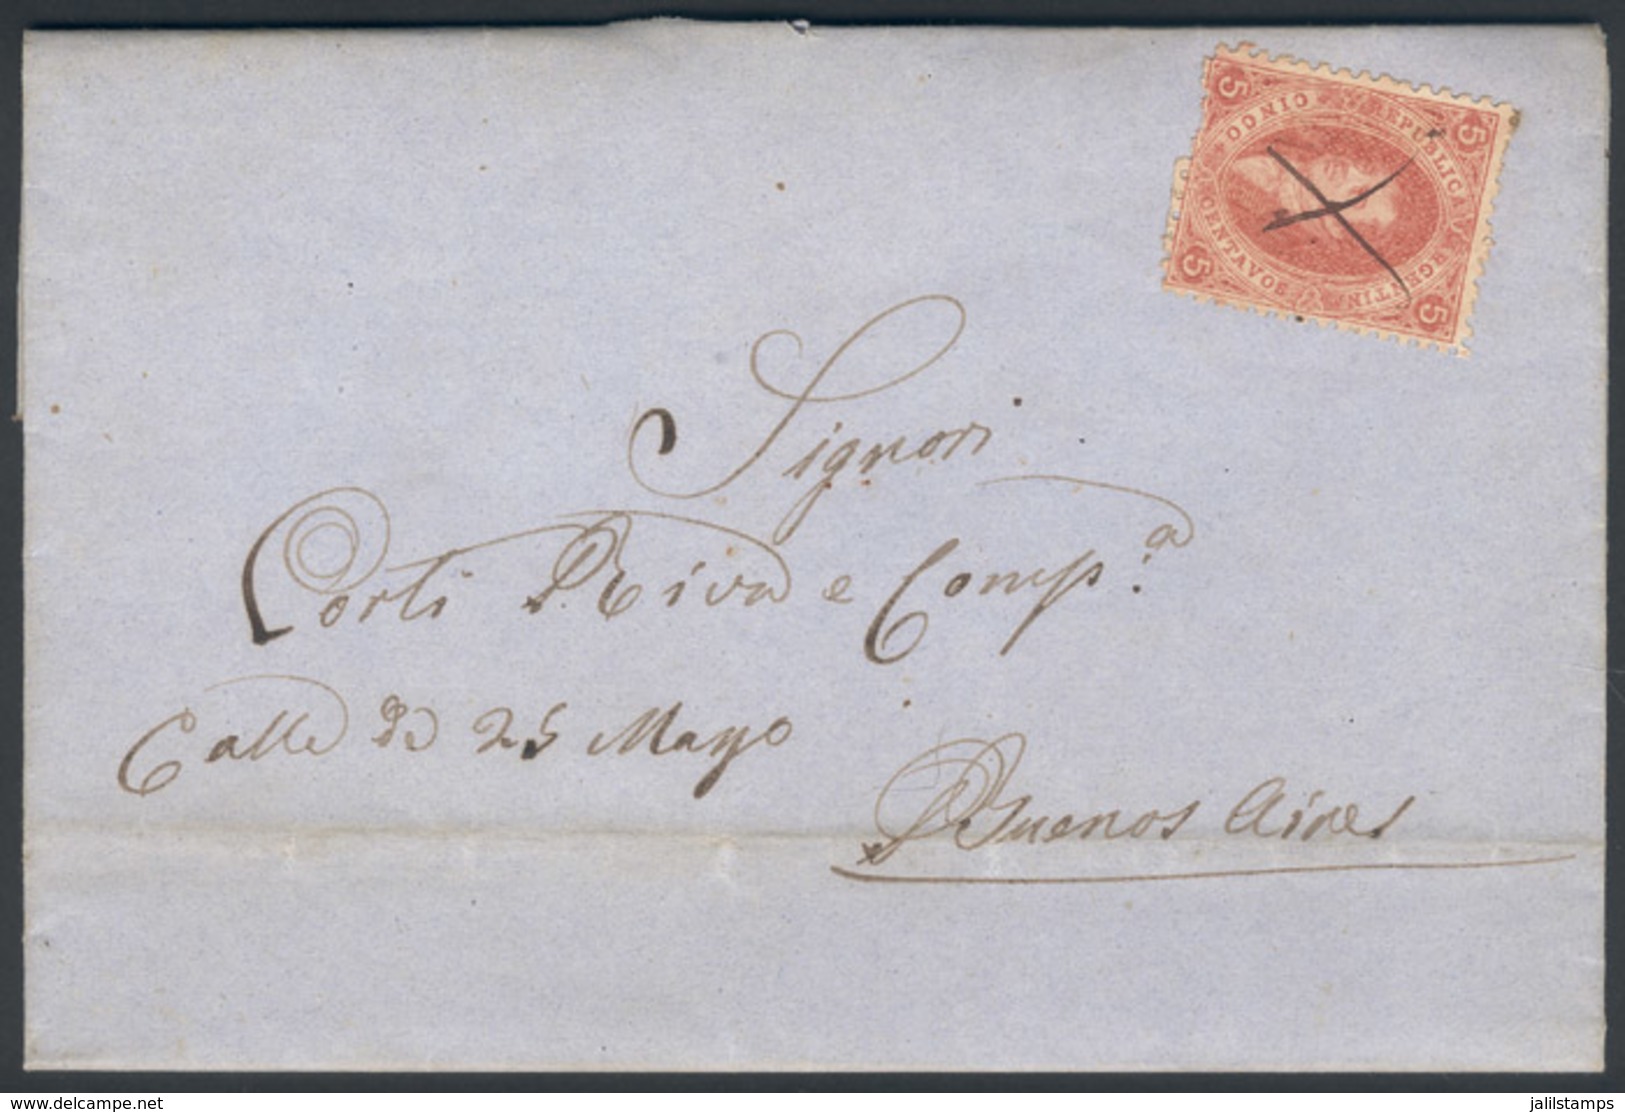 5 5 5 5
REPUBLICA ARGENTINA
CINCO CENTAVOS
Signori
Corti Riva e Comp.a
Calle de 25 Mayo
Buenos Aires
www.delcampe.net
jalilstamps